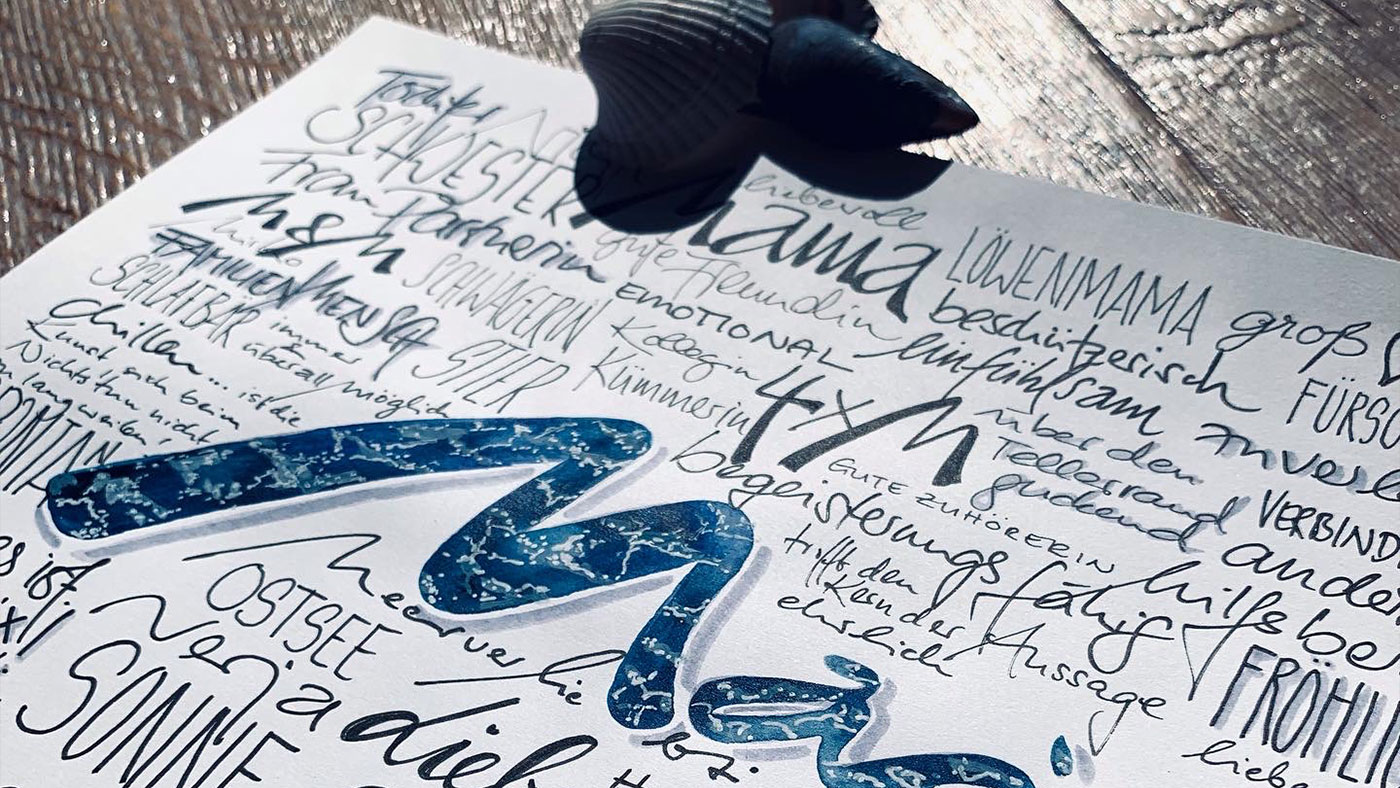 Tochter
SCHWESTER
Frau Partnerin
Mama
liebevoll
LÖWENMAMA groß
M8M
gute Freundin
beschützerisch
FAMILIENMENSCH
SCHWÄGERIN
EMOTIONAL
einfühlsam
SCHLAFBÄR
immer
überall möglich
STIER
Kollegin
Kümmerin
4XM
über den
Tellerrand
guckend
chillen... ist die
Kunst sich beim
Nichtstun nicht
zu langweilen!
GUTE ZUHÖRERIN
begeisterungsfähig
hilfsbe
VERBIND
trifft den
Kern der Aussage
ehrlich
FRÖHLI
liebe
Meer verlie
OSTSEE
SONNE
bz.